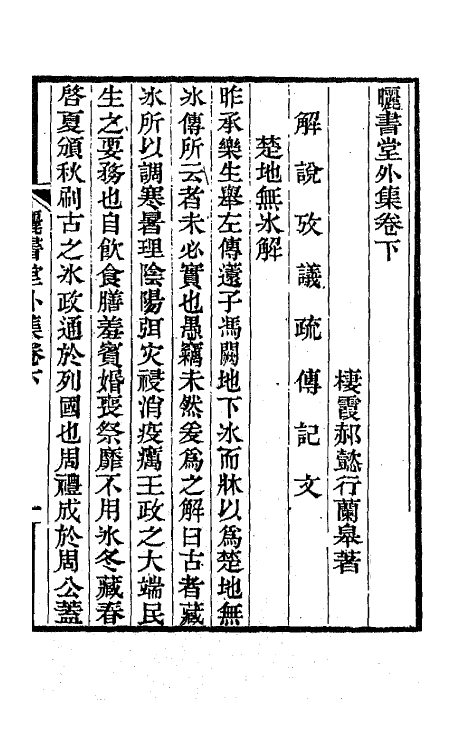 曬書堂外集卷下
棲霞郝懿行蘭皋著
解說攷議疏傳記文
楚地無冰解
昨承樂生舉左傳薳子馮闕地下冰而牀以爲楚地無
冰傳所云者未必實也愚竊未然爰爲之解曰古者藏
冰所以調寒暑理陰陽弭灾祲消疫癘王政之大端民
生之要務也自飲食膳羞賓婚喪祭靡不用冰冬藏春
啓夏頒秋刷古之冰政通於列國也周禮成於周公蓋
曬書堂外集卷下
一